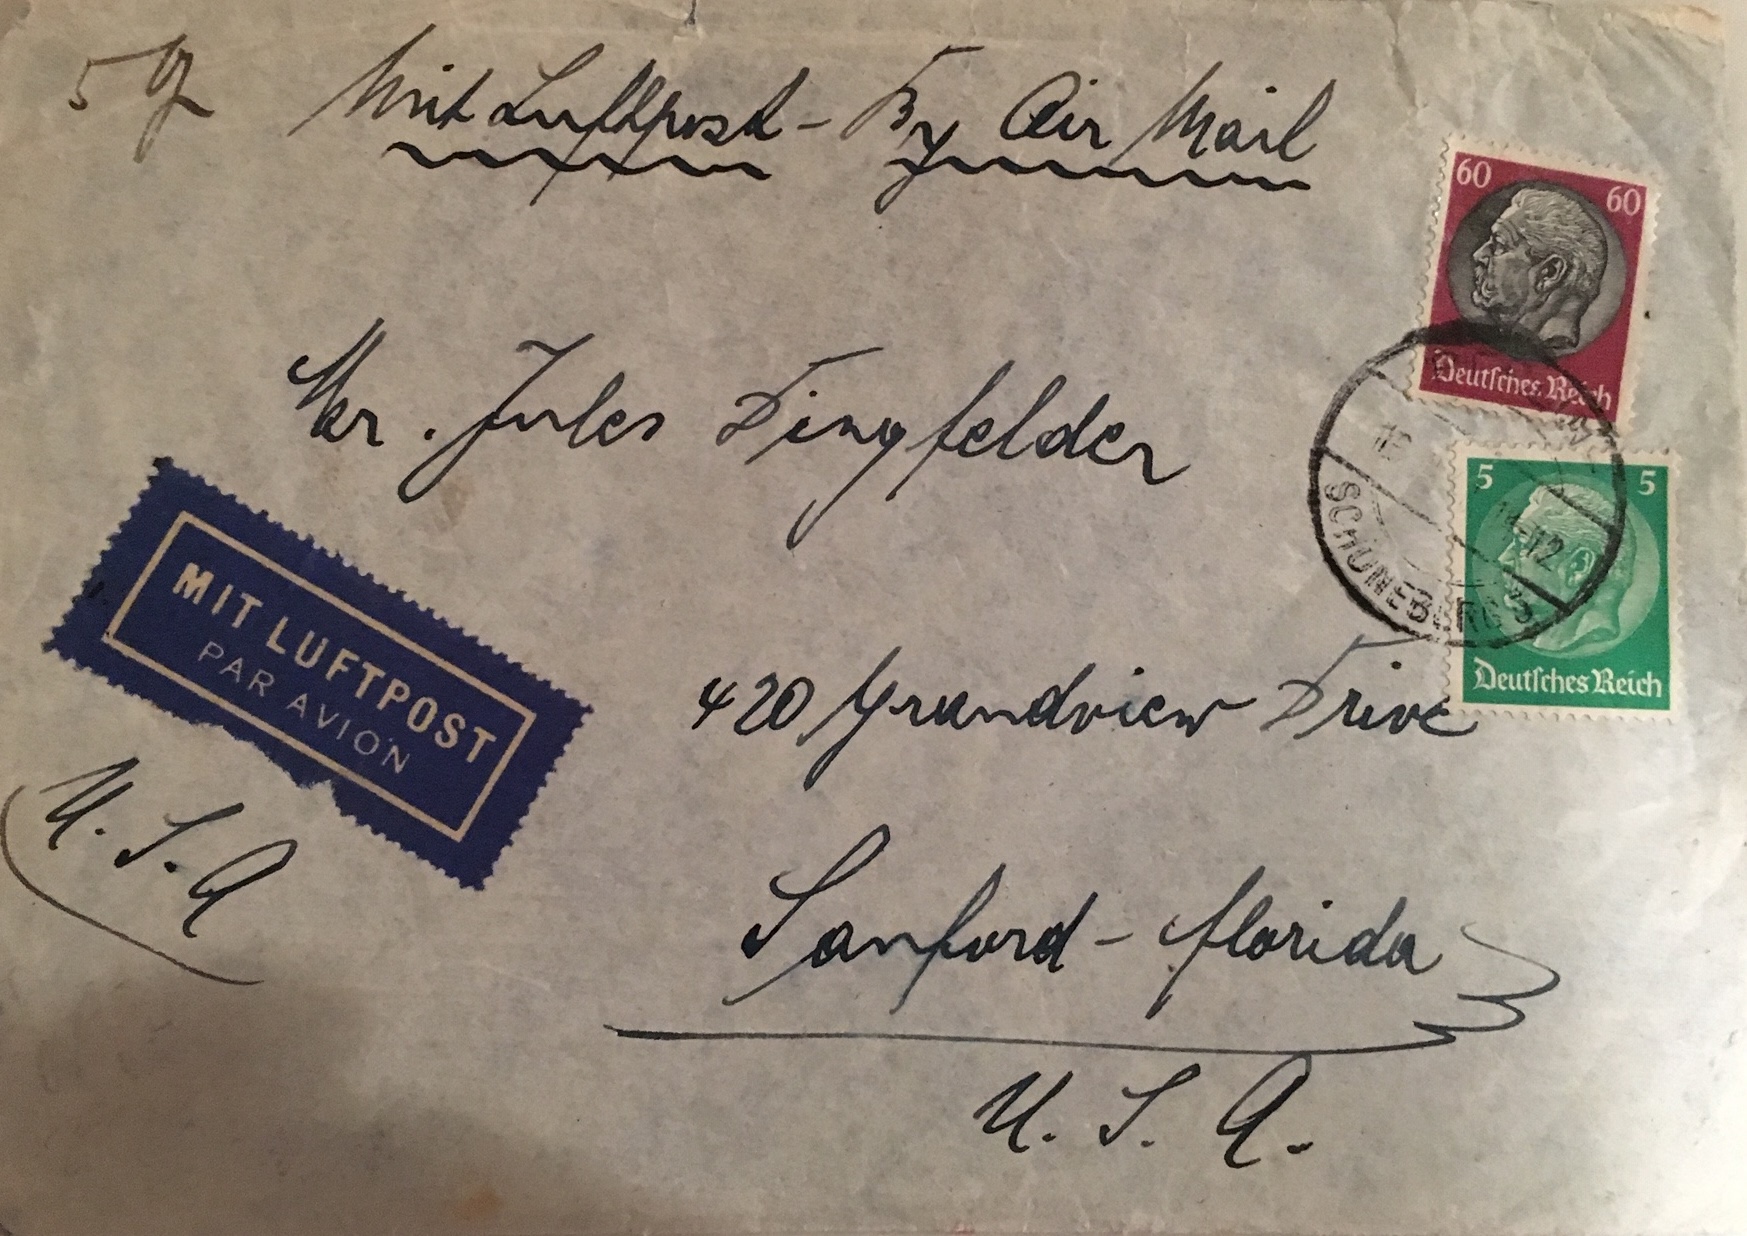 5 g
Mit Luftpost - By Air Mail
60 60
Deutsches Reich
Mr. Jules Dingfelder
5 5
12
SCHÖNEBERG
Deutsches Reich
MIT LUFTPOST
PAR AVION
420 Grandview Drive
U.S.A
Sanford - Florida
U.S.A.